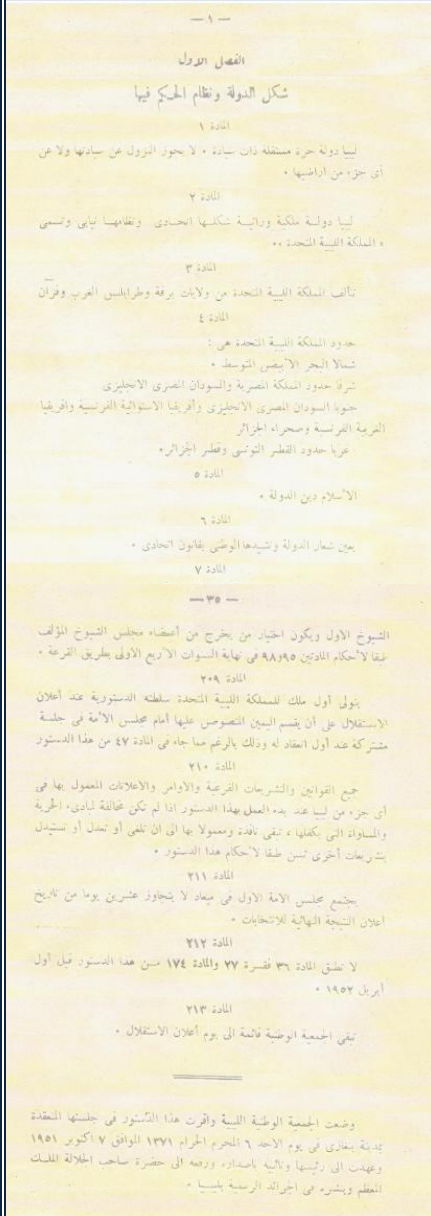 — ١ —
الفصل الاول
شكل الدولة ونظام الحكم فيها
المادة ١
ليبيا دولة حرة مستقلة ذات سيادة ٠ لا يجوز النزول عن سيادتها ولا عن
أى جزء من اراضيها ٠
المادة ٢
ليبيا دولة ملكية وراثية شكلها اتحادى ونظامها نيابى وتسمى
« المملكة الليبية المتحدة »٠
المادة ٣
تتألف المملكة الليبية المتحدة من ولايات برقة وطرابلس الغرب وفزان
المادة ٤
حدود المملكة الليبية المتحدة هى :
شمالا البحر الأبيض المتوسط ٠
شرقا حدود المملكة المصرية والسودان المصرى الانجليزى
جنوبا السودان المصرى الانجليزى وأفريقيا الاستوائية الفرنسية وافريقيا
الغربية الفرنسية وصحراء الجزائر
غربا حدود القطر التونسى وقطر الجزائر٠
المادة ٥
الاسلام دين الدولة ٠
المادة ٦
يعين شعار الدولة ونشيدها الوطنى بقانون اتحادى ٠
المادة ٧
— ٣٥ —
الشيوخ الاول ويكون اختيار من يخرج من أعضاء مجلس الشيوخ المؤلف
طبقا لأحكام المادتين ٩٥و٩٨ فى نهاية السنوات الأربع الاولى بطريق القرعة ٠
المادة ٢٠٩
يتولى أول ملك للمملكة الليبية المتحدة سلطته الدستورية عند أعلان
الاستقلال على أن يقسم اليمين المنصوص عليها أمام مجلس الأمة فى جلسة
مشتركة عند أول انعقاد له وذلك بالرغم مما جاء فى المادة ٤٧ من هذا الدستور
المادة ٢١٠
جميع القوانين والتشريعات الفرعية والاوامر والاعلانات المعمول بها فى
أى جزء من ليبيا عند بدء العمل بهذا الدستور اذا لم تكن مخالفة لمبادىء الحرية
والمساواة التى يكفلها ، تبقى نافذة ومعمولا بها الى ان تلغى أو تعدل أو تستبدل
بتشريعات أخرى تسن طبقا لأحكام هذا الدستور ٠
المادة ٢١١
يجتمع مجلس الامة الاول فى ميعاد لا يتجاوز عشرين يوما من تاريخ
أعلان النتيجة النهائية للانتخابات ٠
المادة ٢١٢
لا تطبق المادة ٣٦ فقرة ٢٧ والمادة ١٧٤ من هذا الدستور قبل أول
أبريل ١٩٥٢ ٠
المادة ٢١٣
تبقى الجمعية الوطنية قائمة الى يوم أعلان الاستقلال ٠
وضعت الجمعية الوطنية الليبية واقرت هذا الدستور فى جلستها المنعقدة
بمدينة بنغازى فى يوم الاحد ٦ المحرم الحرام ١٣٧١ الموافق ٧ اكتوبر ١٩٥١
وعهدت الى رئيسها ونائبيه باصداره ورفعه الى حضرة صاحب الجلالة الملك
المعظم وبنشره فى الجرائد الرسمية بليبيا ٠